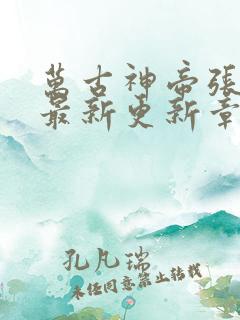 萬古神帝張
最新更新章
孔凡瑞
未经同意禁止转载